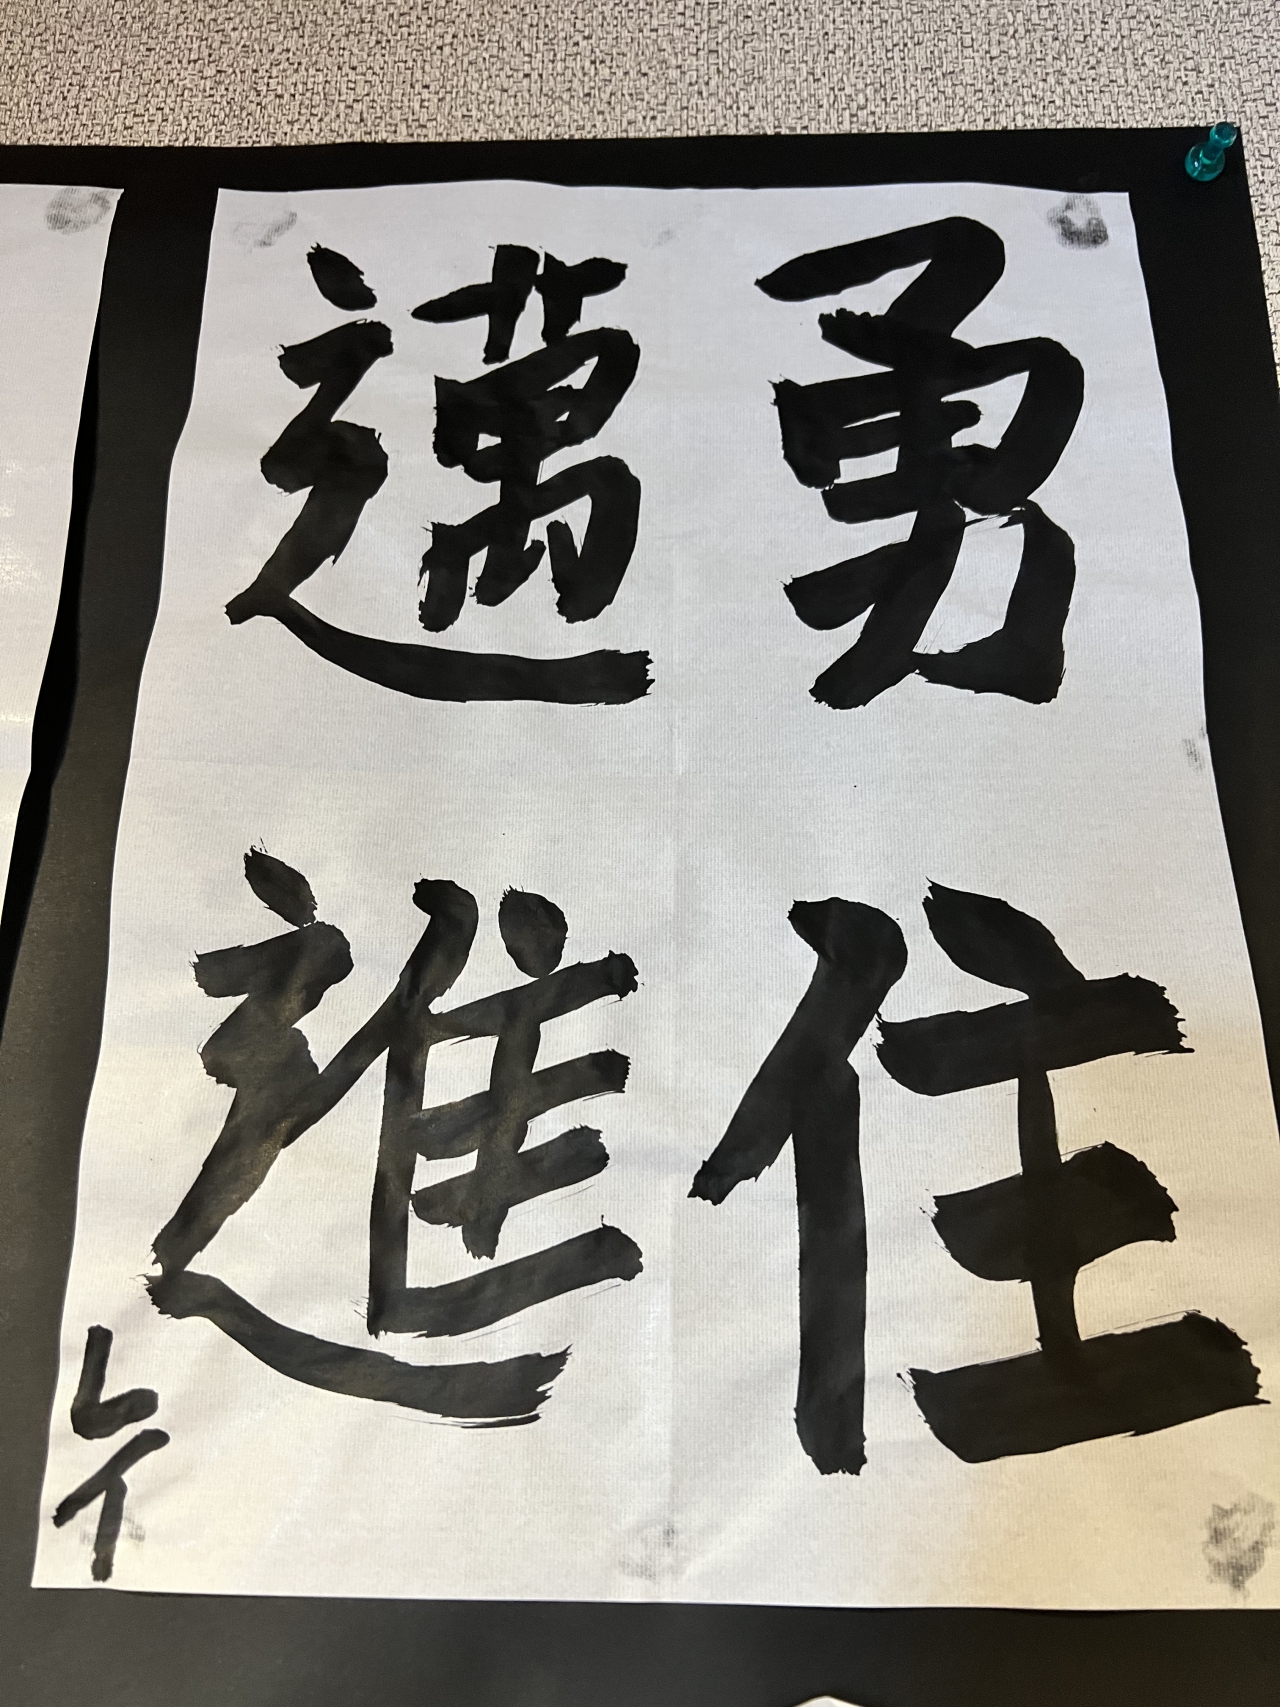 勇住
邁進
レイ